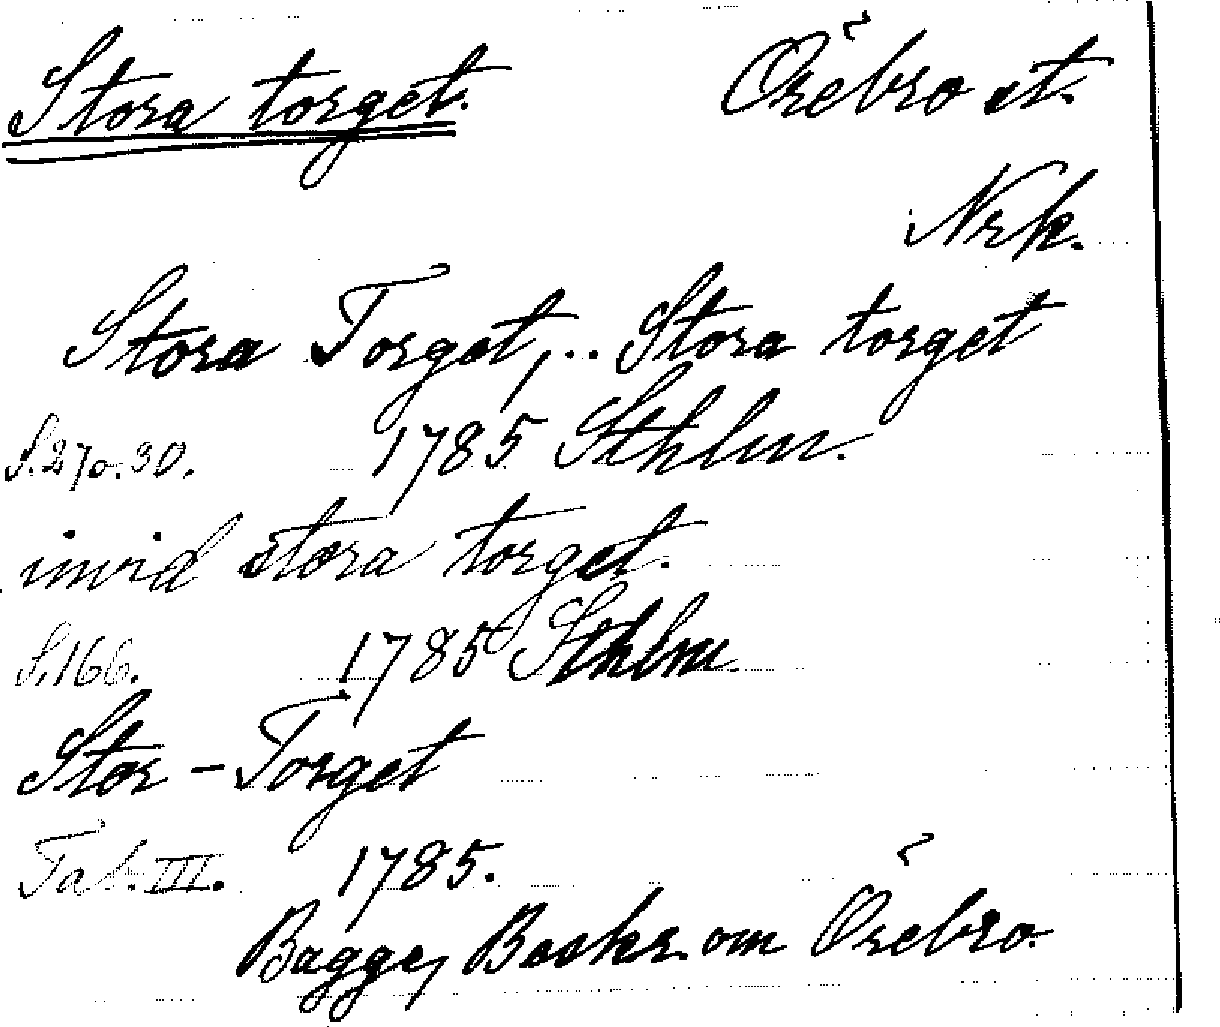 Stora torget. Örebro st.
Nrk.
Stora Torget, .. Stora torget
S. 270. 30. 1785 Sthlm.
invid stora torget.
S. 166. 1785 Sthlm
Stor-Torget
Tab. III. 1785.
Bagge, Beskr. om Örebro.